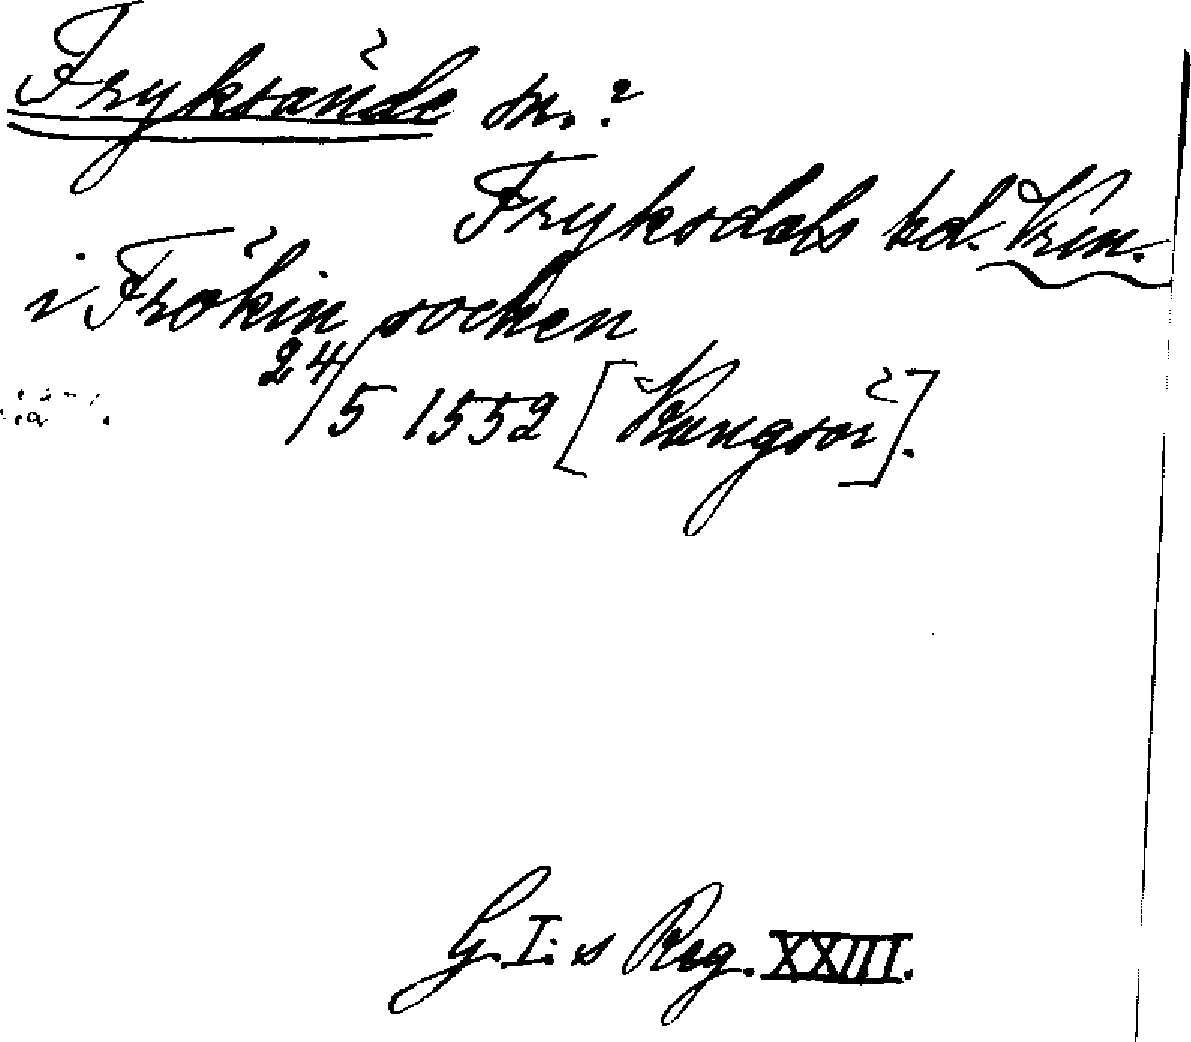 Fryksände sn.?
Fryksdals hd. Vrm.
i Frökin socken
24/5 1552 [Kungsör].
G. I:s Reg. XXIII.